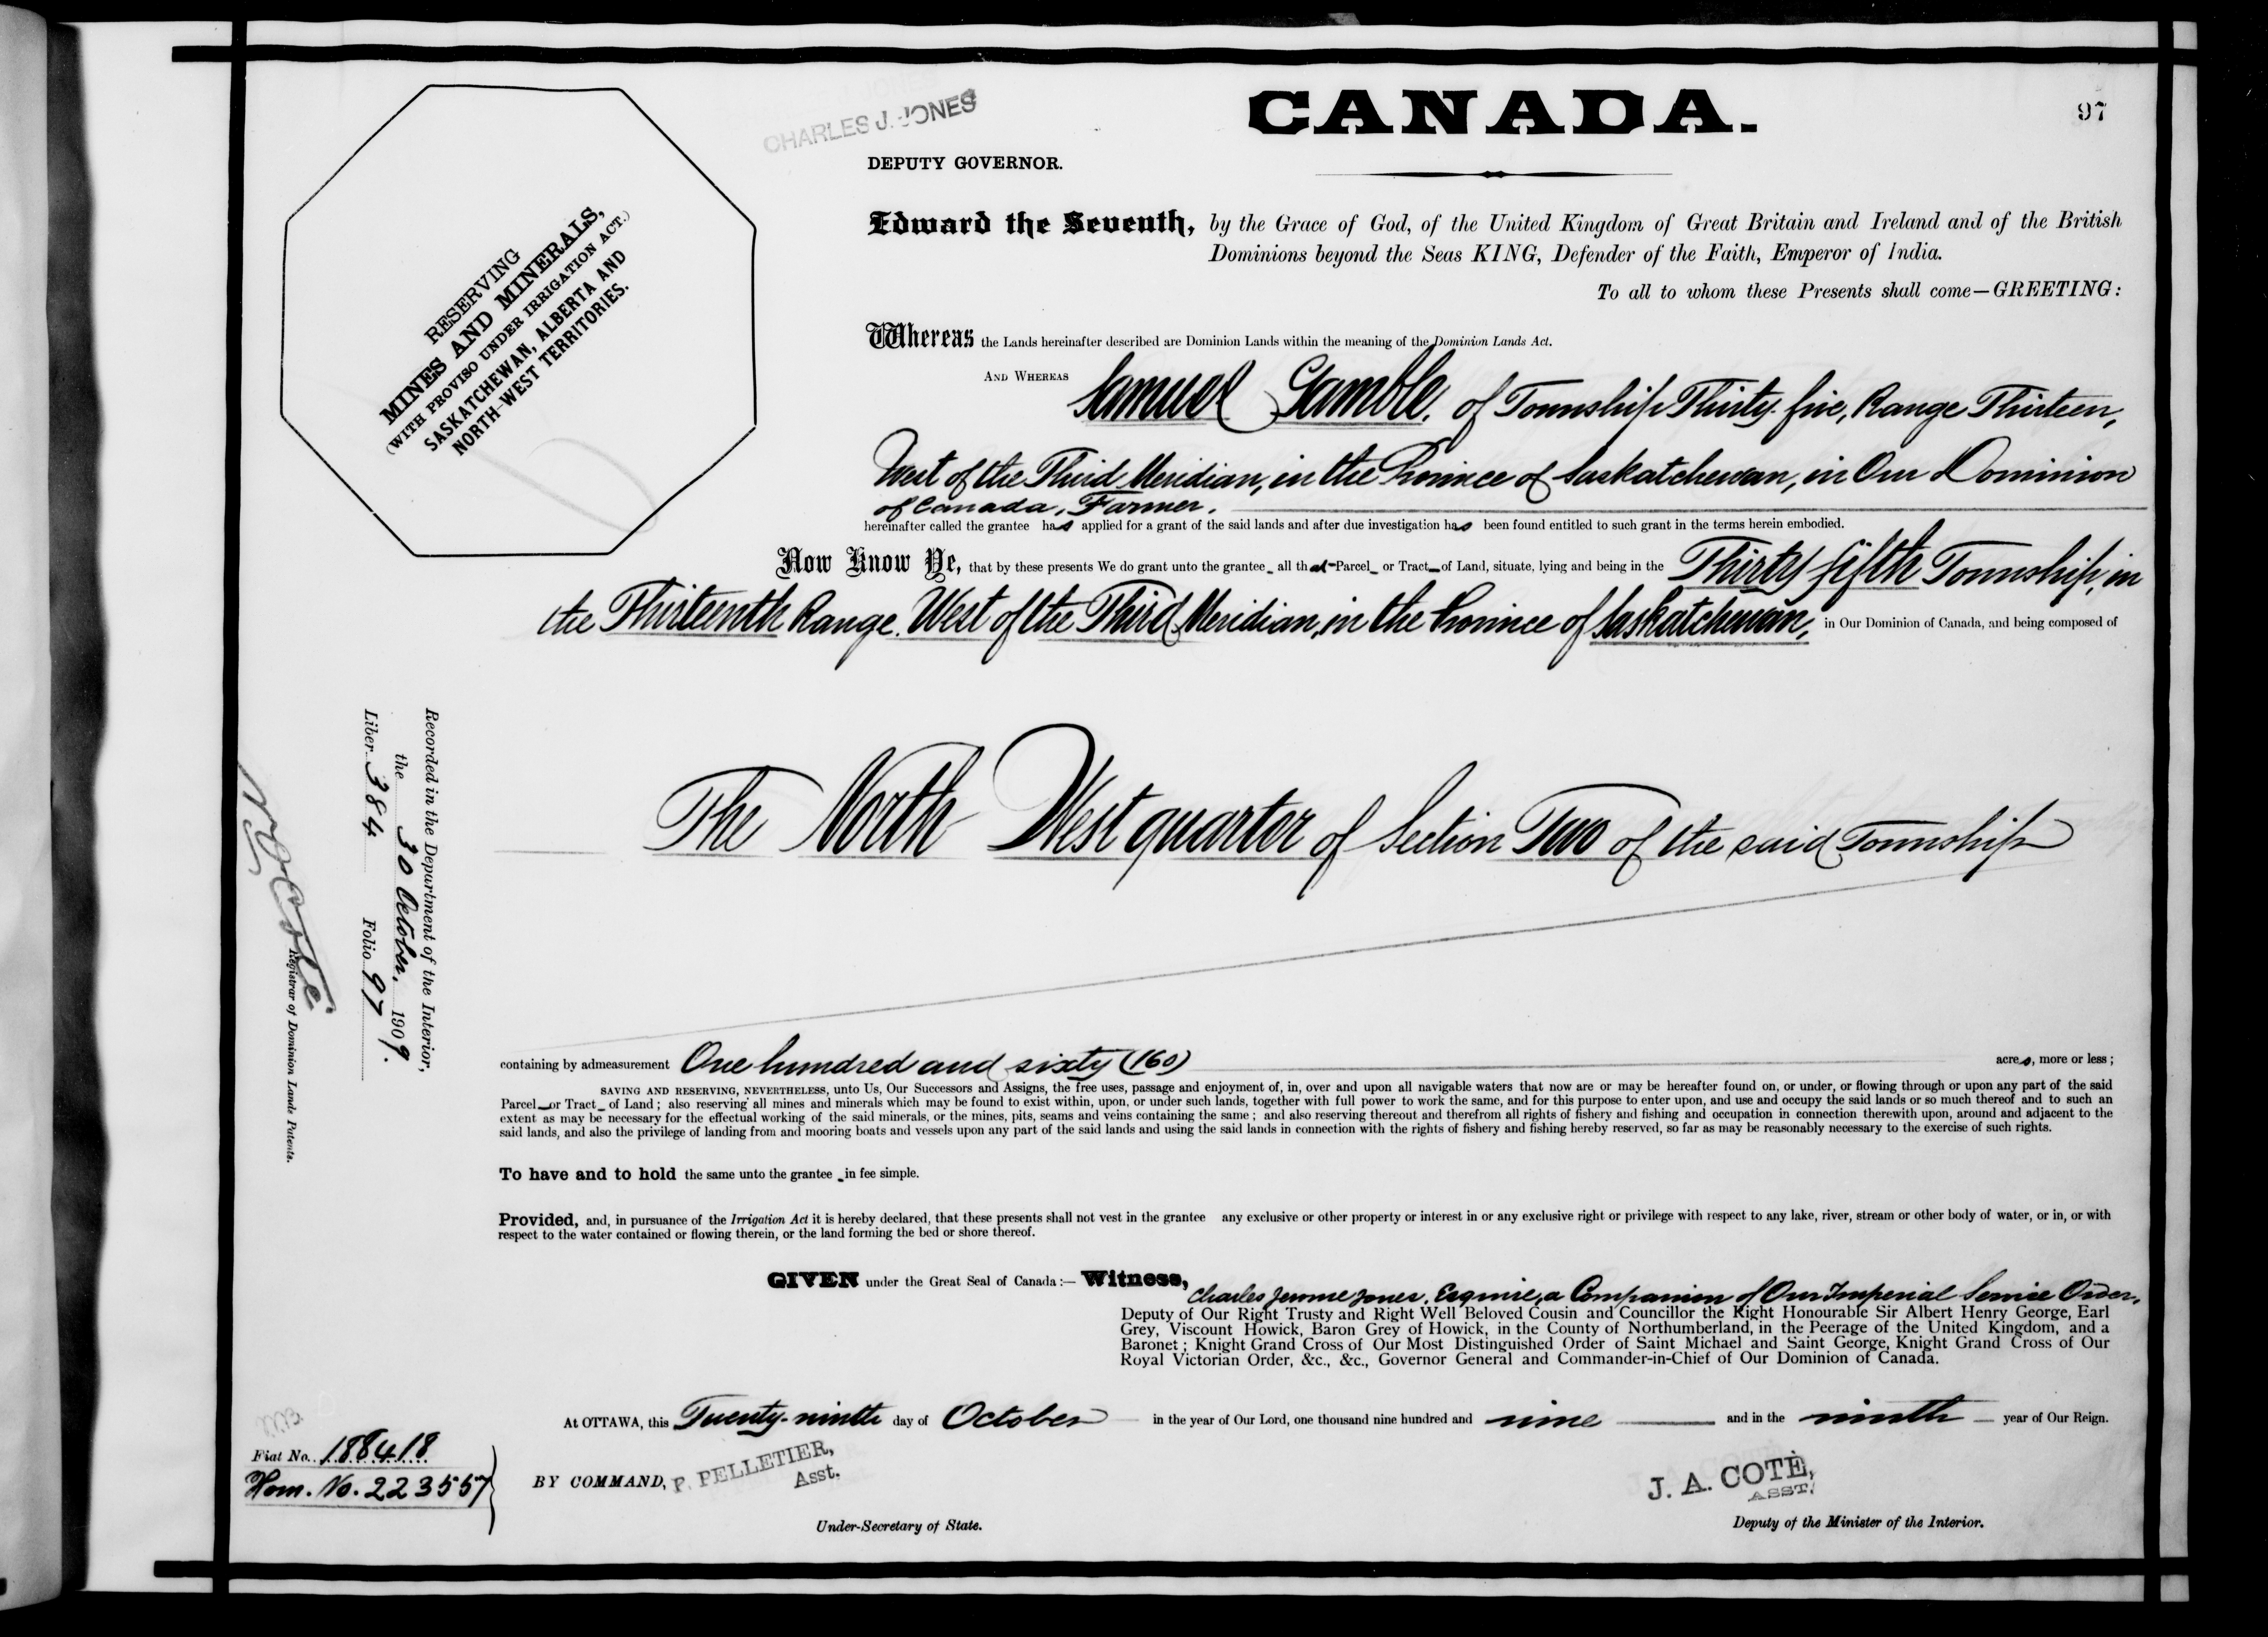 CANADA.
97
CHARLES J. JONES
DEPUTY GOVERNOR.
RESERVING
MINES AND MINERALS,
(WITH PROVISO UNDER IRRIGATION ACT.)
SASKATCHEWAN, ALBERTA AND
NORTH-WEST TERRITORIES.
Edward the Seventh, by the Grace of God, of the United Kingdom of Great Britain and Ireland and of the British
Dominions beyond the Seas KING, Defender of the Faith, Emperor of India.
To all to whom these Presents shall come—GREETING:
Whereas the Lands hereinafter described are Dominion Lands within the meaning of the Dominion Lands Act.
AND WHEREAS Samuel Gamble, of Township Thirty-five, Range Thirteen,
West of the Third Meridian, in the Province of Saskatchewan, in Our Dominion
of Canada, Farmer,
hereinafter called the grantee has applied for a grant of the said lands and after due investigation has been found entitled to such grant in the terms herein embodied.
Now Know Ye, that by these presents We do grant unto the grantee all that Parcel or Tract of Land, situate, lying and being in the Thirty fifth Township, in
the Thirteenth Range, West of the Third Meridian, in the Province of Saskatchewan, in Our Dominion of Canada, and being composed of
The North West quarter of Section Two of the said Township
containing by admeasurement One hundred and sixty (160) acres, more or less;
SAVING AND RESERVING, NEVERTHELESS, unto Us, Our Successors and Assigns, the free uses, passage and enjoyment of, in, over and upon all navigable waters that now are or may be hereafter found on, or under, or flowing through or upon any part of the said
Parcel or Tract of Land; also reserving all mines and minerals which may be found to exist within, upon, or under such lands, together with full power to work the same, and for this purpose to enter upon, and use and occupy the said lands or so much thereof and to such an
extent as may be necessary for the effectual working of the said minerals, or the mines, pits, seams and veins containing the same; and also reserving thereout and therefrom all rights of fishery and fishing and occupation in connection therewith upon, around and adjacent to the
said lands, and also the privilege of landing from and mooring boats and vessels upon any part of the said lands and using the said lands in connection with the rights of fishery and fishing hereby reserved, so far as may be reasonably necessary to the exercise of such rights.
To have and to hold the same unto the grantee in fee simple.
Provided, and, in pursuance of the Irrigation Act it is hereby declared, that these presents shall not vest in the grantee any exclusive or other property or interest in or any exclusive right or privilege with respect to any lake, river, stream or other body of water, or in, or with
respect to the water contained or flowing therein, or the land forming the bed or shore thereof.
GIVEN under the Great Seal of Canada:— Witness,
Charles Jerome Jones, Esquire, a Companion of Our Imperial Service Order,
Deputy of Our Right Trusty and Right Well Beloved Cousin and Councillor the Right Honourable Sir Albert Henry George, Earl
Grey, Viscount Howick, Baron Grey of Howick, in the County of Northumberland, in the Peerage of the United Kingdom, and a
Baronet; Knight Grand Cross of Our Most Distinguished Order of Saint Michael and Saint George, Knight Grand Cross of Our
Royal Victorian Order, &c., &c., Governor General and Commander-in-Chief of Our Dominion of Canada.
At OTTAWA, this Twenty-ninth day of October in the year of Our Lord, one thousand nine hundred and nine and in the ninth year of Our Reign.
BY COMMAND, P. PELLETIER,
Asst.
Under-Secretary of State.
J. A. COTÉ,
ASST.
Deputy of the Minister of the Interior.
Fiat No. 188418
Hom. No. 223557
Recorded in the Department of the Interior,
the 30 October, 1909.
Liber 384 Folio 97
Registrar of Dominion Lands Patents.